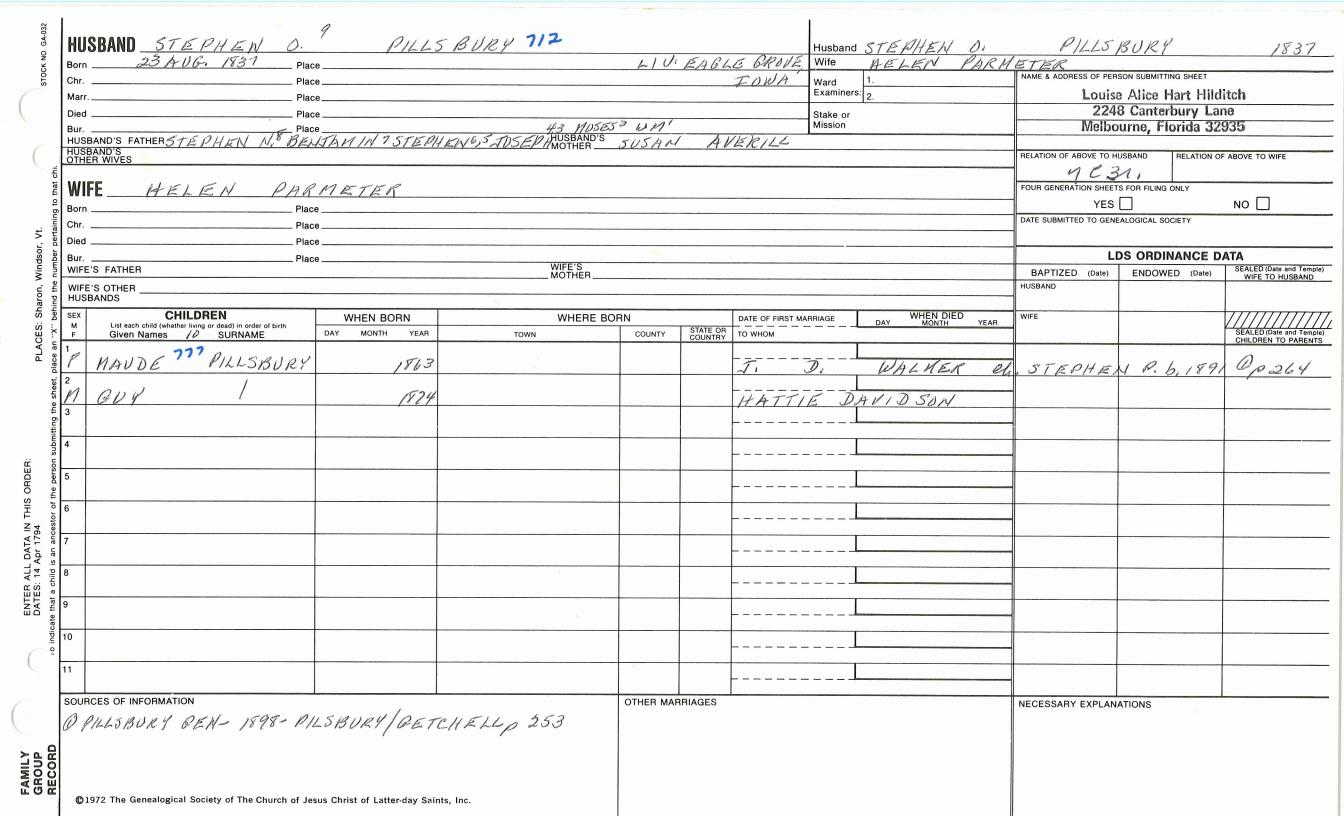 STOCK NO. GA-032
HUSBAND STEPHEN O. 9 PILLSBURY 712
Born 23 AUG. 1837 Place LIV. EAGLE GROVE
Chr. Place IOWA
Marr. Place
Died Place
Bur. Place
43 MOSES² WM¹
HUSBAND'S FATHER STEPHEN N,⁸ BENJAMIN ⁷ STEPHEN⁶,⁵ JOSEPH HUSBAND'S MOTHER SUSAN AVERILL
HUSBAND'S OTHER WIVES
WIFE HELEN PARMETER
Born Place
Chr. Place
Died Place
Bur. Place
WIFE'S FATHER WIFE'S MOTHER
WIFE'S OTHER HUSBANDS
Husband STEPHEN O. PILLSBURY 1837
Wife HELEN PARMETER
Ward Examiners: 1.
2.
Stake or Mission
NAME & ADDRESS OF PERSON SUBMITTING SHEET
Louise Alice Hart Hilditch
2248 Canterbury Lane
Melbourne, Florida 32935
RELATION OF ABOVE TO HUSBAND RELATION OF ABOVE TO WIFE
FOUR GENERATION SHEETS FOR FILING ONLY
YES NO
DATE SUBMITTED TO GENEALOGICAL SOCIETY
LDS ORDINANCE DATA
BAPTIZED (Date) ENDOWED (Date) SEALED (Date and Temple) WIFE TO HUSBAND
HUSBAND
WIFE
SEALED (Date and Temple) CHILDREN TO PARENTS
SEX M F
CHILDREN
List each child (whether living or dead) in order of birth
Given Names 10 SURNAME
WHEN BORN
DAY MONTH YEAR
WHERE BORN
TOWN COUNTY STATE OR COUNTRY
DATE OF FIRST MARRIAGE
TO WHOM
WHEN DIED
DAY MONTH YEAR
1 F MAUDE 777 PILLSBURY 1863 J. D. WALKER ch. STEPHEN P. b. 1891 @p264
2 M GUY 1874 HATTIE DAVIDSON
3
4
5
6
7
8
9
10
11
SOURCES OF INFORMATION
@PILLSBURY GEN- 1898- PILSBURY/GETCHELL p 253
OTHER MARRIAGES
NECESSARY EXPLANATIONS
©1972 The Genealogical Society of The Church of Jesus Christ of Latter-day Saints, Inc.
FAMILY GROUP RECORD
ENTER ALL DATA IN THIS ORDER:
DATES: 14 Apr 1794
PLACES: Sharon, Windsor, Vt.
o indicate that a child is an ancestor of the person submitting the sheet, place an "X" behind the number pertaining to that chi